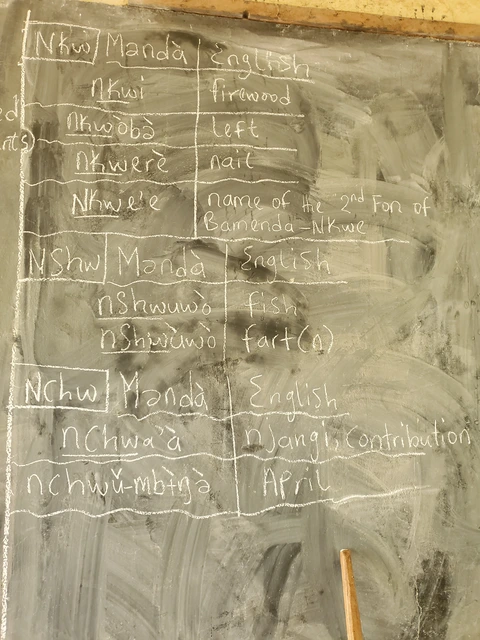 Nkw Məndà English
nkwi firewood
nkwòbà left
nkwerè nail
Nkwe'e name of the 2nd Fon of
Bamenda-Nkwe
NShw Məndà English
nshwuwò fish
nshwùwò fart(n)
Nchw Məndà English
nchwa'à njangi, contribution
April